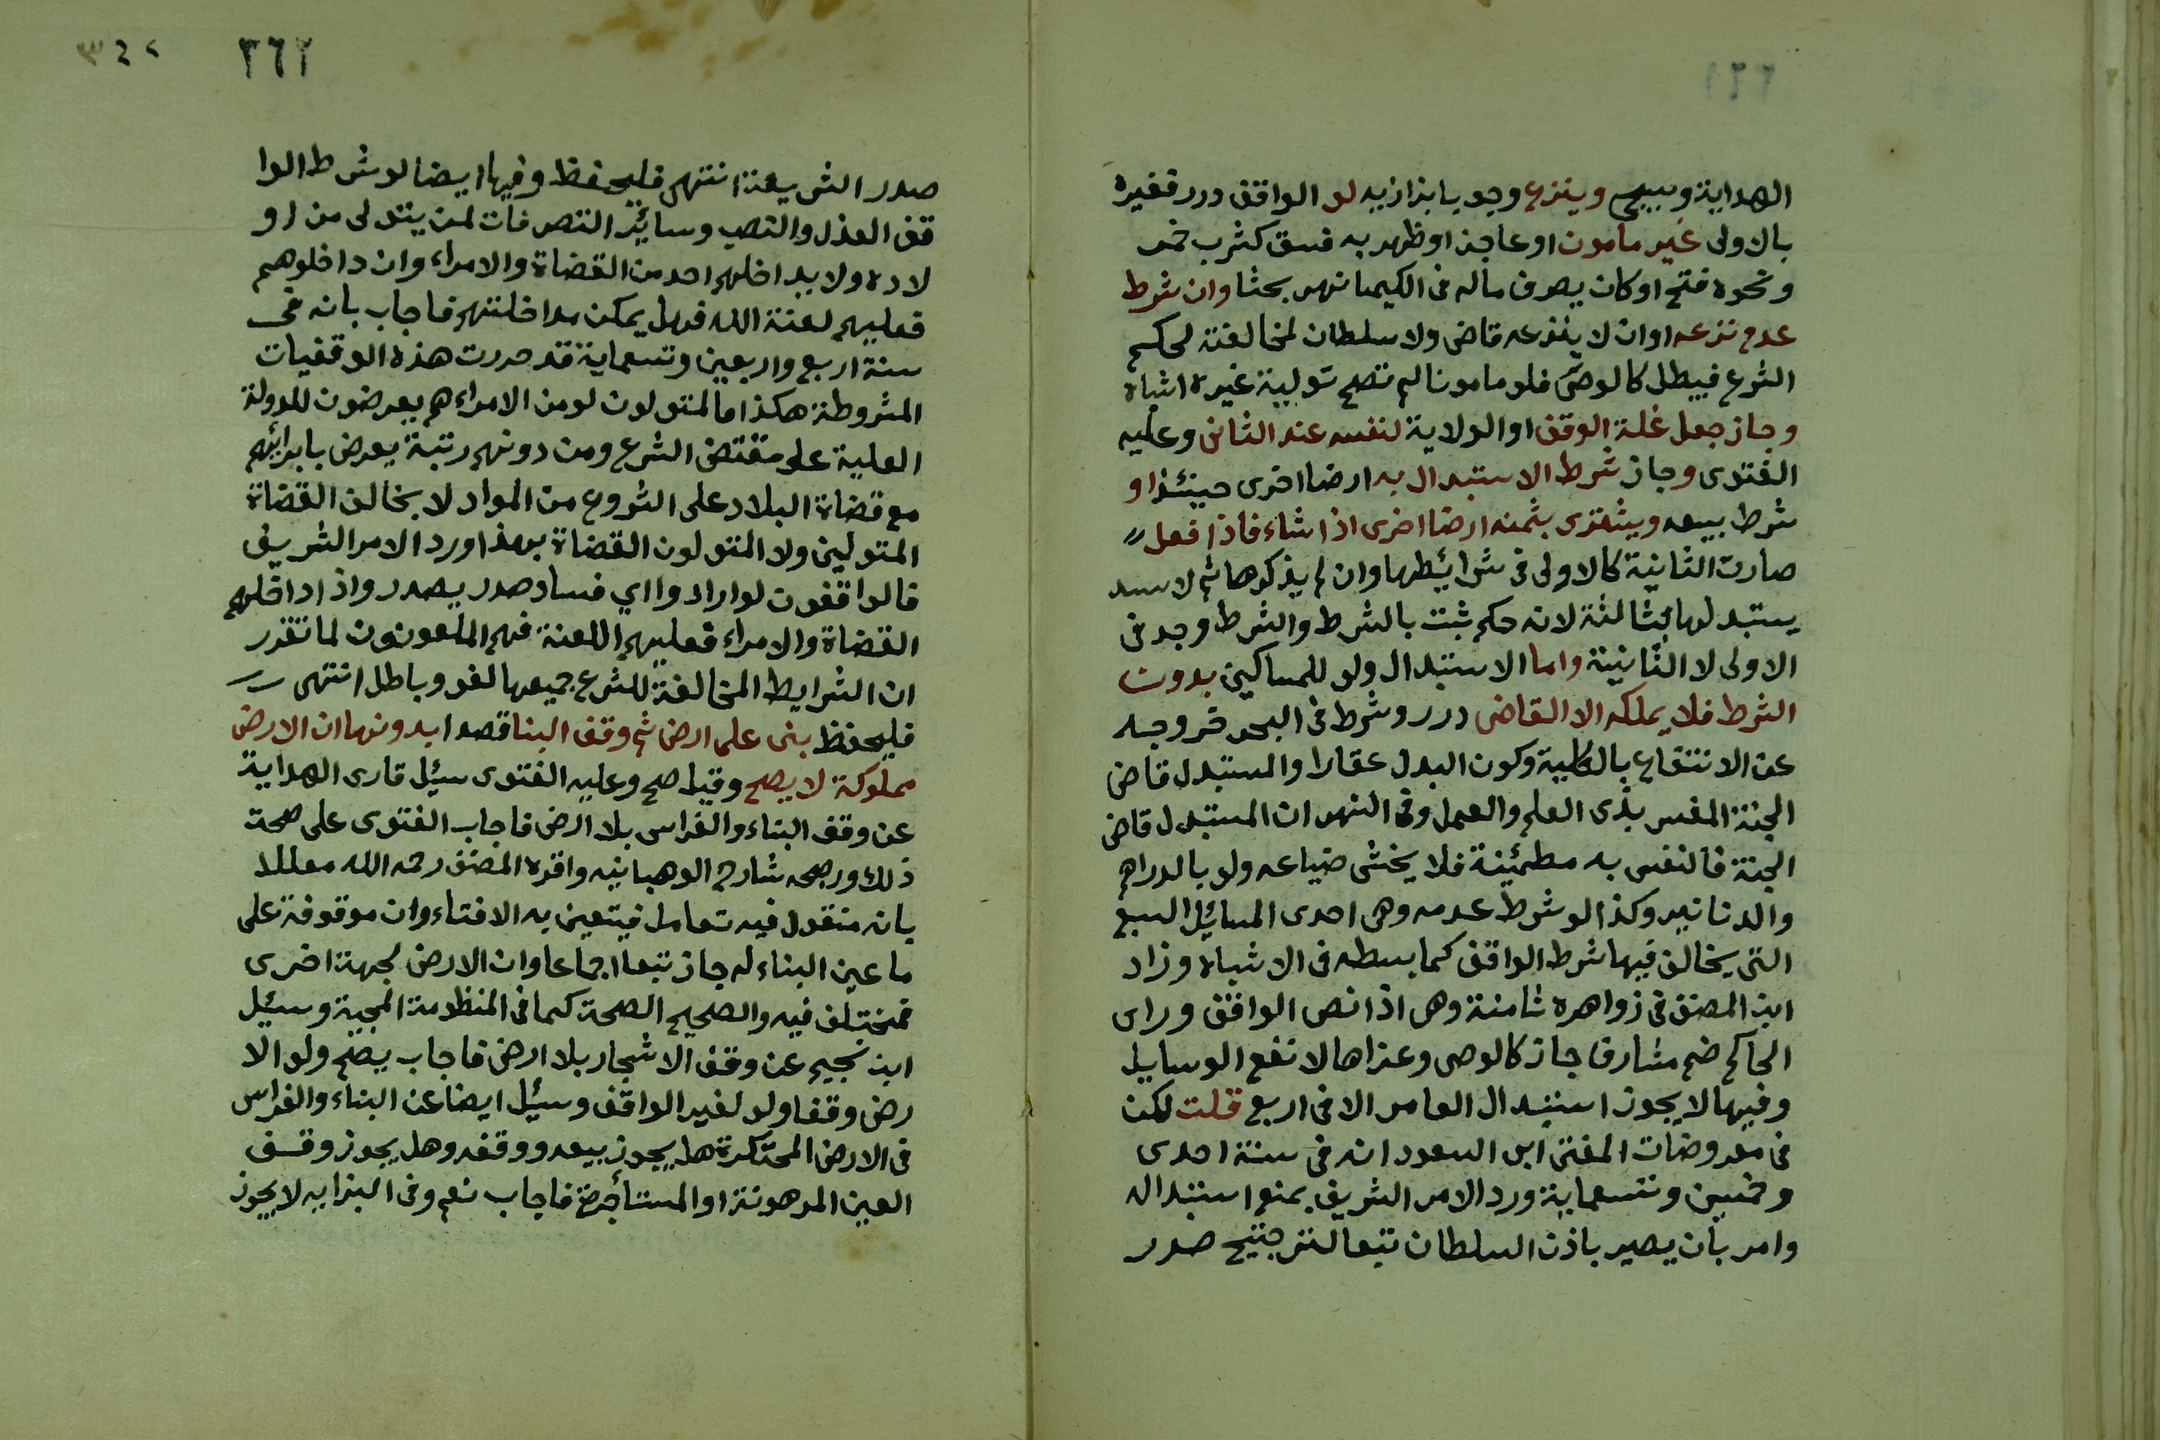 الهداية وسيجي وينزع وجوبا بزازيه لو الواقف درر فغيره
بالاولى غير مامون او عاجز او ظهر به فسق كشرب خمر
ونحوه فتح او كان يصرف ماله فى الكيميا نهر بحثا وان شرط
عدم نزعه او ان لا ينزعه قاضى ولا سلطان لمخالفتة لحكم
الشرع فيبطل كالوصى فلو مامونا لم تصح تولية غيره اشباه
وجاز جعل غلة الوقف او الولاية لنفسه عند الثانى وعليه
الفتوى وجاز شرط الاستبدال به ارضا اخرى حينئذ او
شرط بيعه ويشترى بثمنه ارضا اخرى اذا شاء فاذا فعل
صارت الثانية كالاولى فى شرائيطها وان لم يذكرها ثم لا
يستبدلها بثالثة لانه حكم ثبت بالشرط والشرط وجد فى
الاولى لا الثانية واما الاستبدال ولو للمساكين بدون
الشرط فلا يملكه الا القاضى درر وشرط فى البحر خروجه
عن الانتفاع بالكلية وكون البدل عقارا والمستبدل قاضى
الجنة المفسر بذى العلم والعمل وفى النهر ان المستبدل قاضى
الجنة فالنفس به مطمئينة فلا يخشى ضياعه ولو بالدراهم
والدنانير وكذا لو شرط عدمه وهى احدى المسائيل السبع
التى يخالف فيها شرط الواقف كما بسطه فى الاشباه وزاد
ابن المصنف فى زواهره ثامنة وهى اذا نص الواقف وراى
الحاكم ضم مشارف جاز كالوصى وعزاها لانفع الوسايل
وفيها لا يجوز استبدال العامر الا فى اربع قلت لكن
فى معروضات المفتى ابى السعود انه فى سنة احدى
وخمسين وتسعماية ورد الامر الشريف بمنع استبداله
وامر بأن يصير باذن السلطان تبعا لترجيح صدر
٣٦٢
٣٤٢
صدر الشريعة انتهى فليحفظ وفيها ايضا لو شرط الوا
قف العذل والنصب وسائير التصرفات لمن يتولى من او
لاده ولا يداخلهم احد من القضاة والامراء وان داخلوهم
فعليهم لعنة الله فهل يمكن مداخلتهم فاجاب بانه فى
سنة اربع واربعين وتسعماية قد حررت هذه الوقفيات
المشروطة هكذا فالمتولون لو من الامراء هم يعرضون للدولة
العلية على مقتضى الشرع ومن دونهم رتبة يعرض بابرائهم
مع قضاة البلاد على الشروع من المواد لا يخالف القضاة
المتولين ولا المتولون القضاة بهذا ورد الامر الشريف
فالواقفون لو ارادوا اي فساد صدر يصدر واذا داخلهم
القضاة والامراء فعليهم اللعنة فهم الملعونون لما تقرر
ان الشرايط المخالفة للشرع جميعها لغو وباطل انتهى
فليحفظ بنى على ارض ثم وقف البنا قصدا بدونها ان الارض
مملوكة لا يصح وقيل صح وعليه الفتوى سئيل قارى الهداية
عن وقف البناء والغراس بلا ارض فاجاب الفتوى على صحة
ذلك ورجحه شارح الوهبانيه واقره المصنف رحمه الله معللا
بانه منقول فيه تعامل فيتعين به الافتاء وان موقوفة على
ما عين البناء له جاز تبعا اجماعا وان الارض لجهة اخرى
فمختلف فيه والصحيح الصحة كما فى المنظومة المحبية وسئيل
ابن نجيم عن وقف الاشجار بلا ارض فاجاب يصح ولو الا
رض وقفا ولو لغير الواقف وسئيل ايضا عن البناء والغراس
فى الارض المحتكرة هل يجوز بيعه ووقفه وهل يجوز وقف
العين المرهونة او المستأجرة فاجاب نعم وفى البزازيه لا يجوز